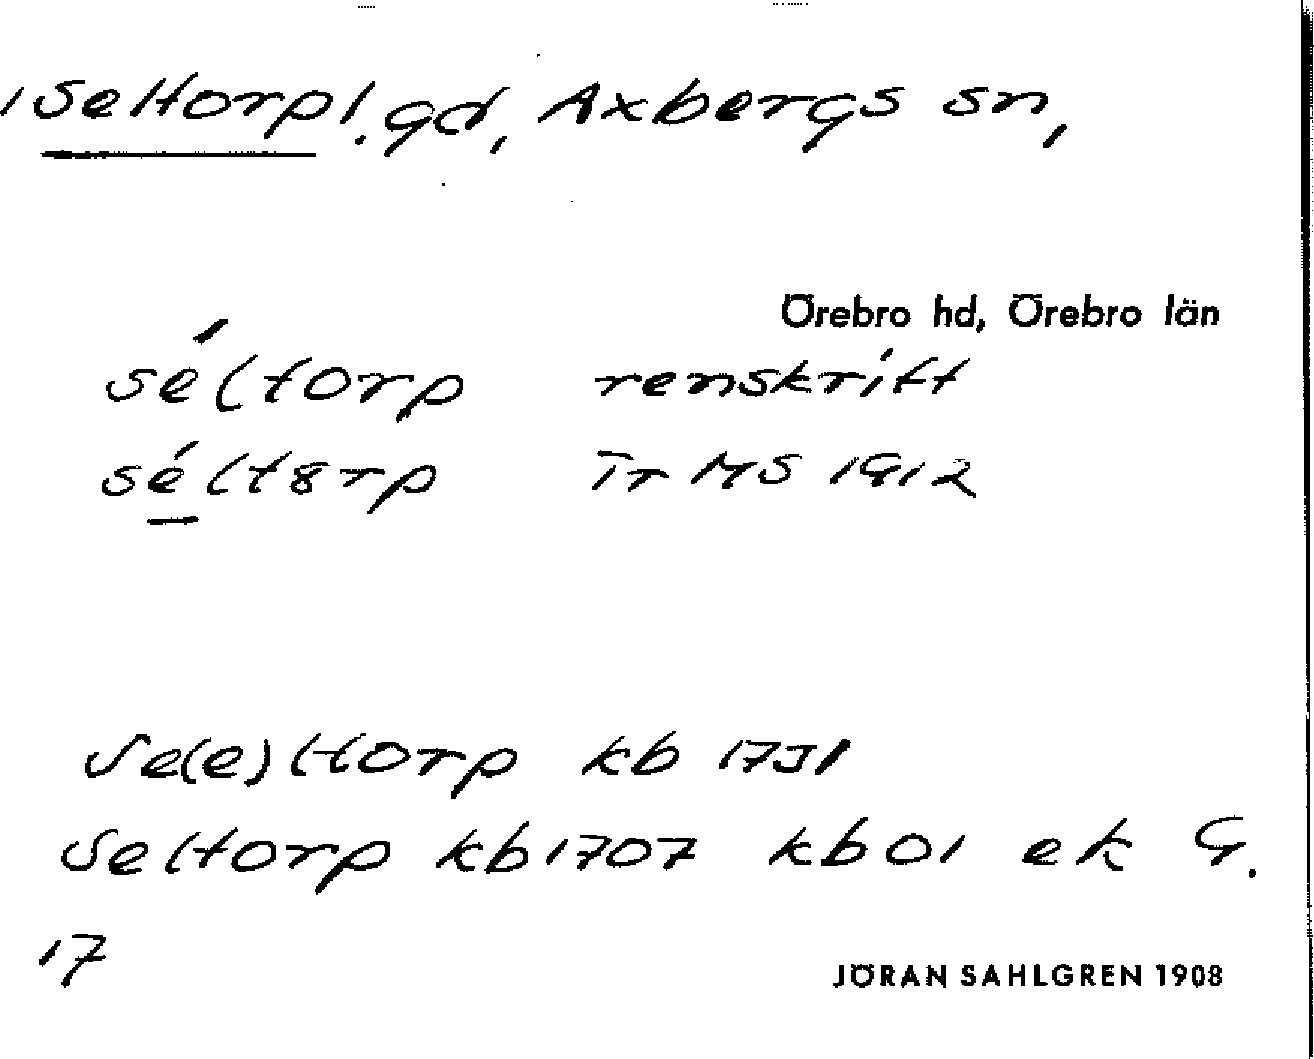 /Seltorp/. gd, Axbergs sn,
Örebro hd, Örebro län
séltorp renskrift
séltȣrp Tr MS 1912
Se(e)ltorp kb 1731
Seltorp kb 1707 kb 01 ek G.
17
JÖRAN SAHLGREN 1908